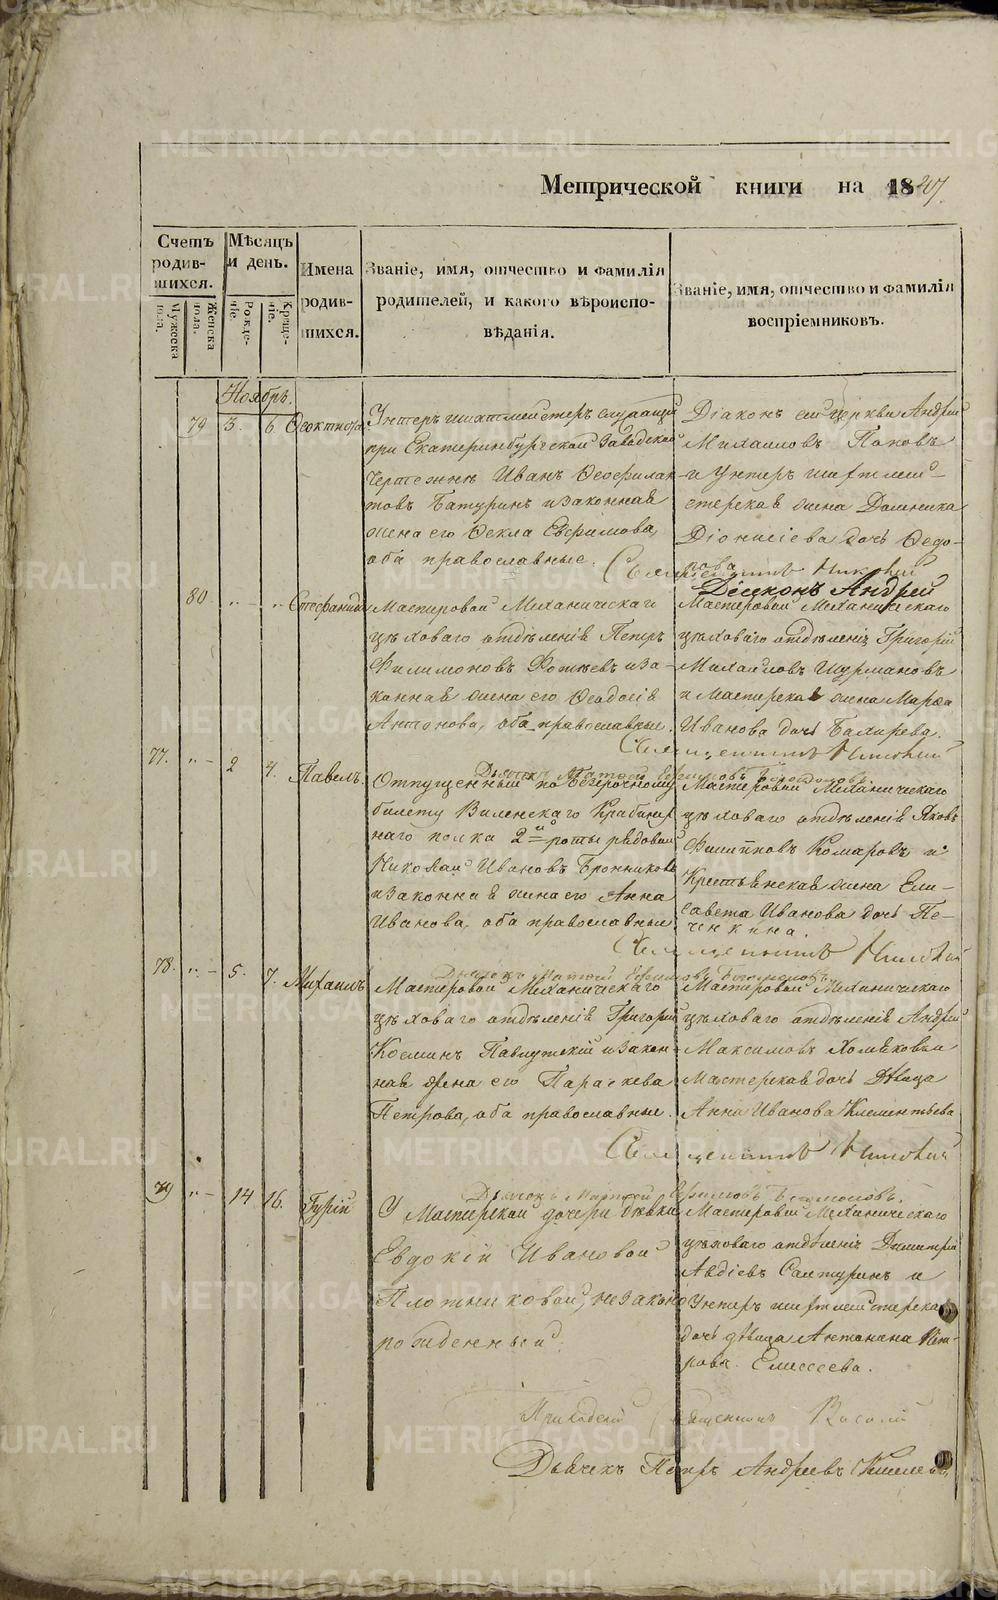 METRIKI.GASO-URAL.RU
Метрической книги на 1847.
Счетъ родив-шихся.
Мѣсяцъ и день.
Имена родив-шихся.
Званіе, имя, отчество и фамилія родителей, и какого вѣроиспо-вѣданія.
Званіе, имя, отчество и фамилія воспріемниковъ.
Мужеска пола.
Женска пола.
Рожде-ніе.
Креще-ніе.
Ноябрь.
79 3. 6
Унтеръ шихтмейстеръ служащій
при Екатеринбургской Заводской
Чертежнѣ Иванъ Ѳеофилак-
товъ Батуринъ и законная
жена его Ѳекла Евфимова,
оба православные.
Діаконъ сей церкви Андрей
Михаиловъ Поповъ
и Унтеръ шихтмей-
стерская жена Домника
Діонисіева дочь Ѳедо-
рова
Діаконъ Андрей
80. " - " Стефанида
Мастеровой Механическаго
цѣховаго отдѣленія Петръ
Филимоновъ Фотѣевъ и за-
конная жена его Ѳеодосія
Антонова, оба православные.
Мастеровой Механическаго
цѣховаго отдѣленія Григорій
Михайловъ Шурмановъ
и Мастерская жена Марѳа
Иванова дочь
77. " - 2 4. Павелъ.
Отпущенный по безсрочному
билету Виленскаго
наго полка 2й роты рядовой
Николай Ивановъ Бронниковъ
и законная жена его Анна
Иванова, оба православные
Мастеровой Механическаго
цѣховаго отдѣленія Яковъ
Филипповъ Комаровъ и
Крестьянская жена Ели-
савета Иванова дочь Пе-
ченкина.
78. " - 5. 7. Михаилъ
Мастеровой Механическаго
цѣховаго отдѣленія Григорій
Козминъ Павлуцкій и закон-
ная жена его Параскева
Петрова, оба православные.
Мастеровой Механическаго
цѣховаго отдѣленія Андрей
Максимовъ Хомяковъ и
Мастерская дочь дѣвица
Анна Иванова Клементьева
79 " - 14 16. Гурій
У Мастерской дочери дѣвки
Евдокіи Ивановой
Плотниковой, незаконно
рожденный.
Мастеровой Механическаго
цѣховаго отдѣленія Димитрій
Авдіевъ Салтуринъ и
Унтеръ шихтмейстерская
дочь дѣвица Антонина Пет-
рова Елисеева.
Приходскій Священникъ
Дьячекъ Петръ Андреевъ